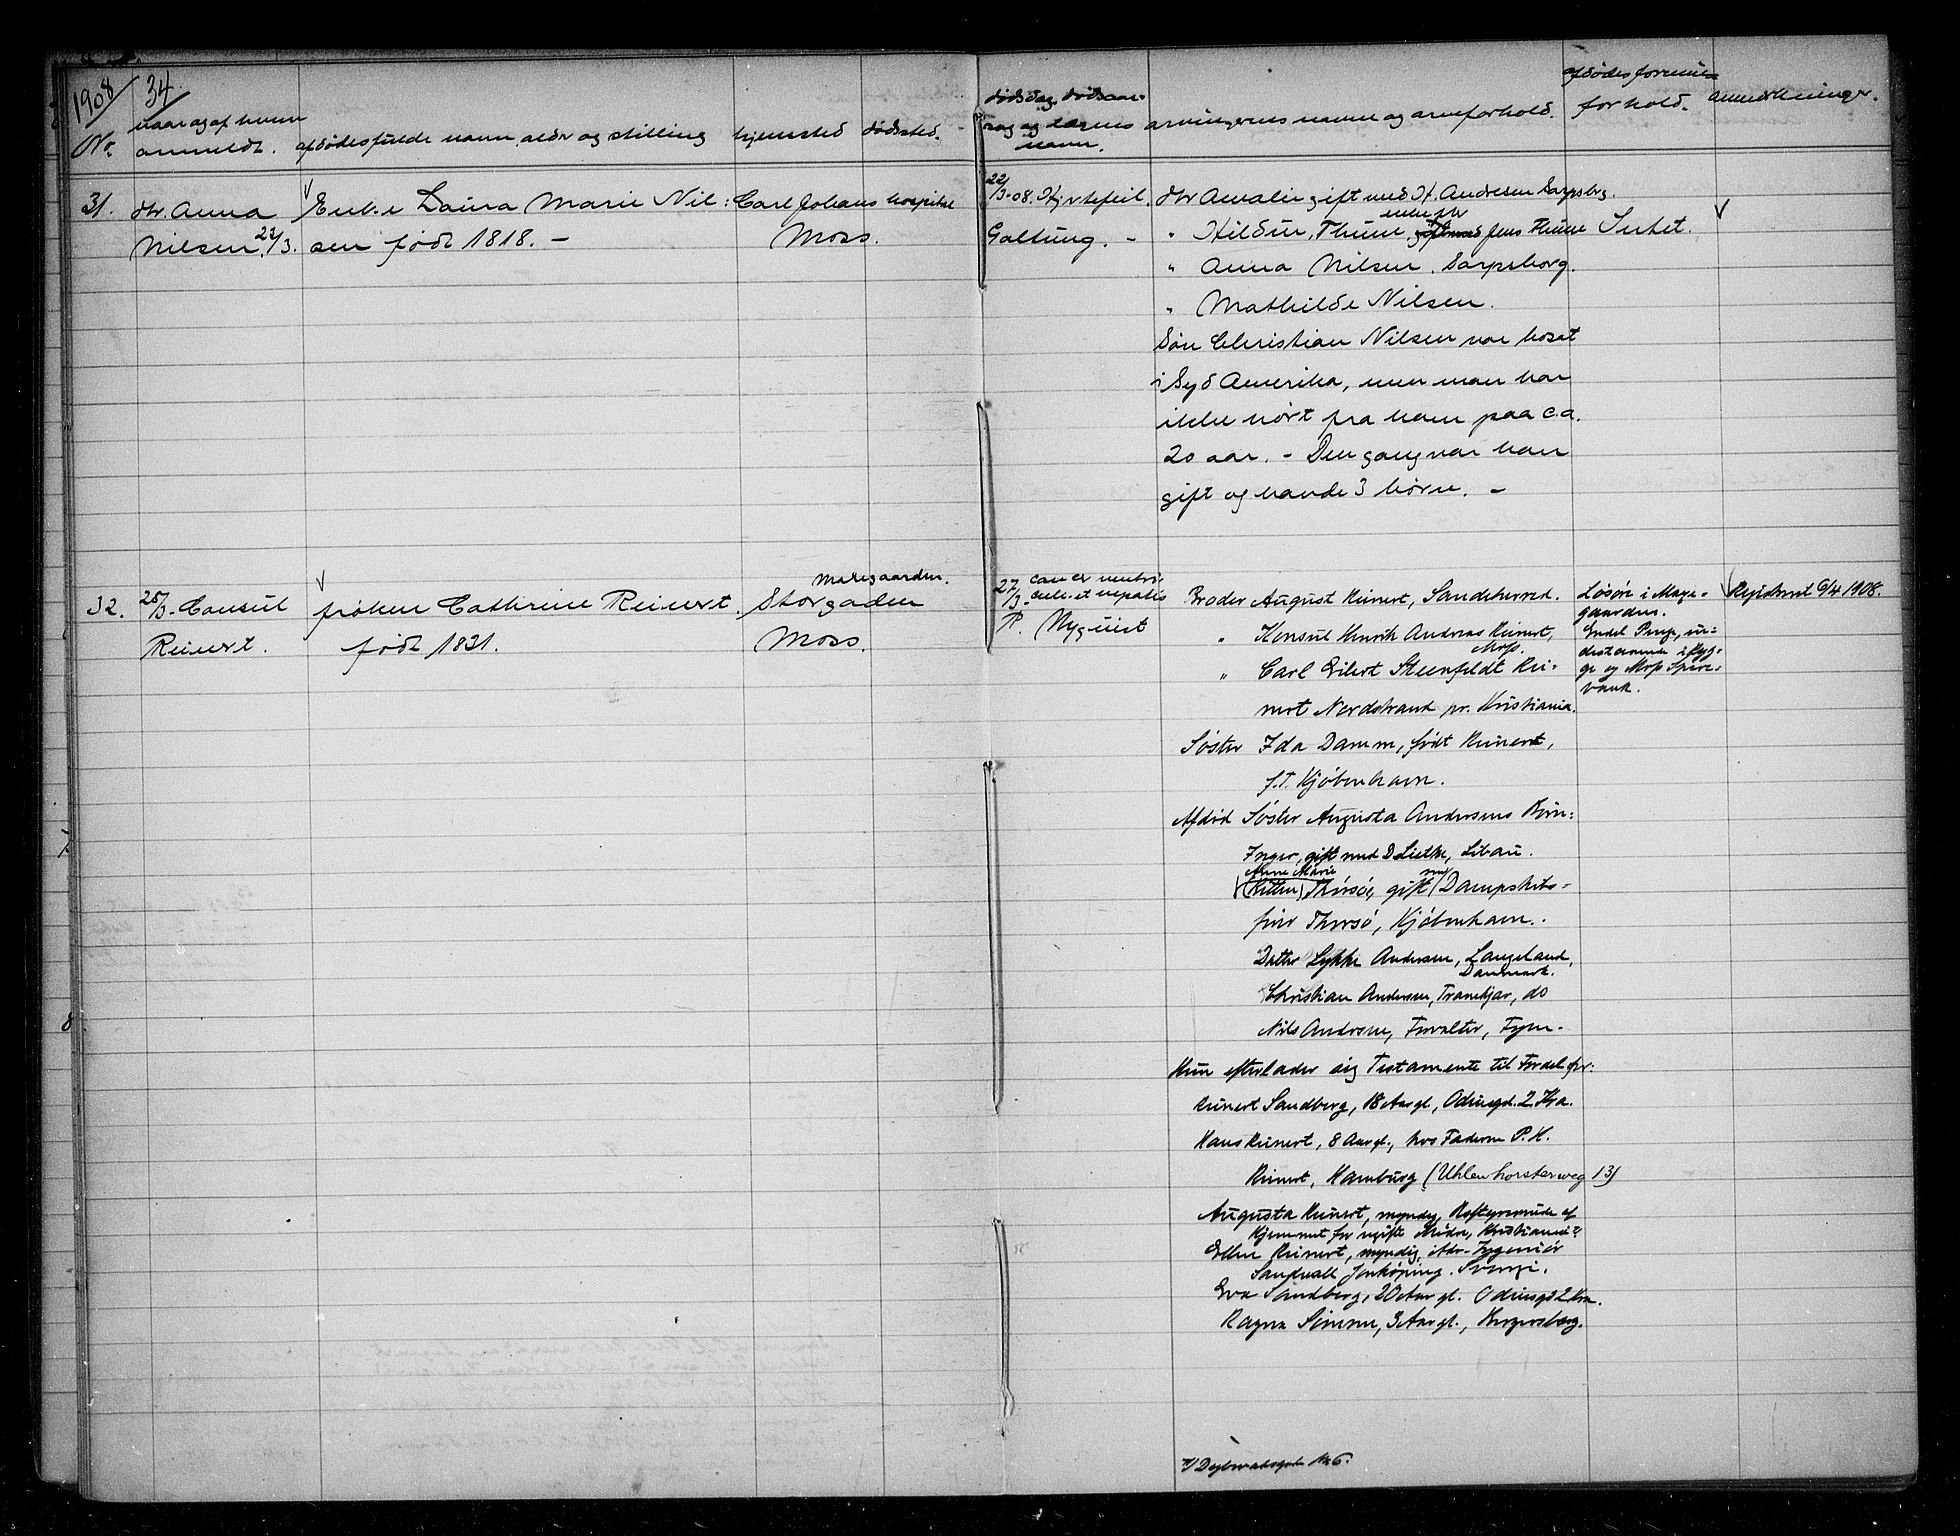 1908 / 34.
No. naar og af hvem anmeldt. afdødes fulde navn, aldr og stilling hjemsted dødsted. dødsdag, dødsaarsag og lægens navn. arvingernes navne og arveforhold. afdødes formuesforhold. anmerkninger.
31. dtr. Anna Enke Laura Marie Nil: Carl Johans hospital
Nilsen, 22/3. sen født 1818. – Moss.
22/3-08. Hjertefeil.
Galtung. –
dtr Amalie gift med H. Andresen Sarpsbrg.
" Hildur, Thune Jens Thune
" Anna Nilsen, Sarpsborg.
" Mathilde Nilsen.
Søn Christian Nilsen var bosat
i Syd Amerika, men man har
ikke hørt fra ham paa c.a.
20 aar. – Den gang var han
gift og havde 3 børn. –
Intet.
32. 28/3. Consul frøken Cathrine Reinert. Storgaden
Reinert. født 1831. Moss.
27/3. cancer
P. Nyquist
Broder August Reinert, Sandeherred.
" Konsul Henrik Andreas Reinert,
Moss.
" Carl Eilert Steenfeldt Rei-
nert Nordstrand pr. Kristiania.
Søster Ida Damm, født Reinert,
f.T. Kjøbenhavn.
Afdød Søster Augusta Andersens Børn:
Inger, gift med D. Lietke, Libau.
Anne Marie
(Kitten) Thorsøe, gift m/ Dampskibs-
fører Thorsø, Kjøbenhavn.
Datter Lykke Andersen, Langeland,
Danmark.
Christian Andersen, Tranekjær, do
Nils Andersen, Forvalter, Fyen.
Hun efterlader sig Testamente til Fordel for:
Reinert Sandberg, 18 Aar gl., Odinsgd. 2 Kra.
Hans Reinert, 8 Aar gl., hos Faderen P. H.
Reinert, Hamburg (Uhlenhorsterweg 13)
Augusta Reinert, myndig, Bestyrerinde af
Hjemmet for ugifte Mødre, Kristiania?
Ellen Reinert, myndig, Adr. Ingeniør
Sandvall Jønkøping. Sverige.
Eva Sandberg, 20 Aar gl. Odinsgd 2 Kra.
Ragna Simonsen, 3 Aar gl.,
Løsøre i Mage-
gaarden.
Endel Penge, in-
destaaende i Ryg-
ge og Moss Spare-
bank.
Registreret 6/4 1908.